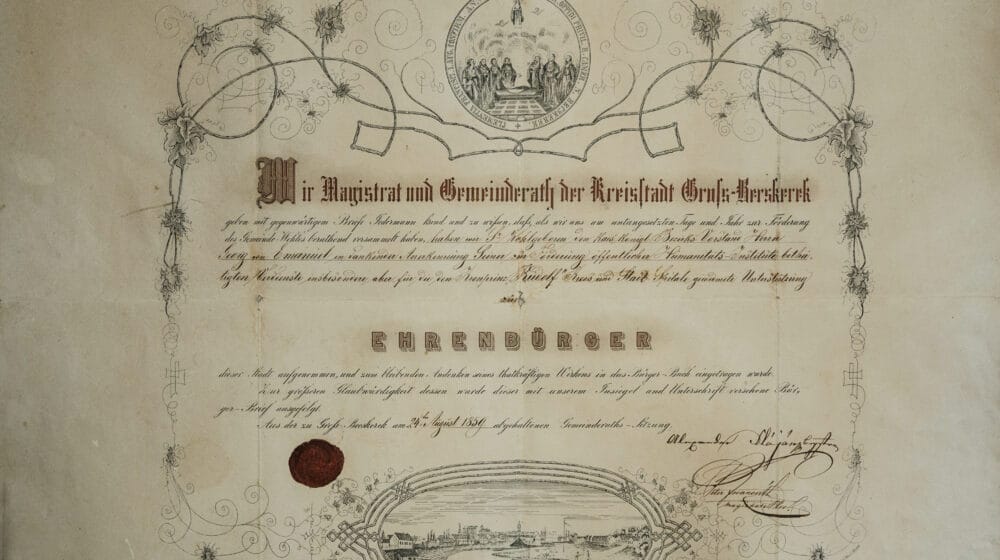 Wir Magistrat und Gemeinderath der Kreisstadt Gross-Becskerek
geben mit gegenwärtigem Briefe Jedermann kund und zu wissen, dass, als wir uns am untangesetzten Tage und Jahr zur Förderung
des Gemeinde Wohles berathend versammelt haben, haben wir Sr Hochgeboren den Kais. Königl. Bezirks Vorstand Herrn
Georg von Emanuel in dankbarer Anerkennung Seiner in Förderung öffentlicher Humanitäts-Institute bethä-
tigten Verdienste insbesondere aber für die dem Kronprinz Rudolf und Stadt Spitale gewidmete Unterstützung
zum
EHRENBÜRGER
dieser Stadt aufgenommen, und zum bleibenden Andenken seines thatkräftigen Wirkens in das Bürger-Buch eingetragen wurde.
Zur größeren Glaubwürdigkeit dessen wurde dieser mit unserem Insiegel und Unterschrift versehene Bür-
ger-Brief ausgefolgt.
Aus der zu Groß-Becskerek am 24ten August 1859 abgehaltenen Gemeinderaths-Sitzung.
Alexander
Peter